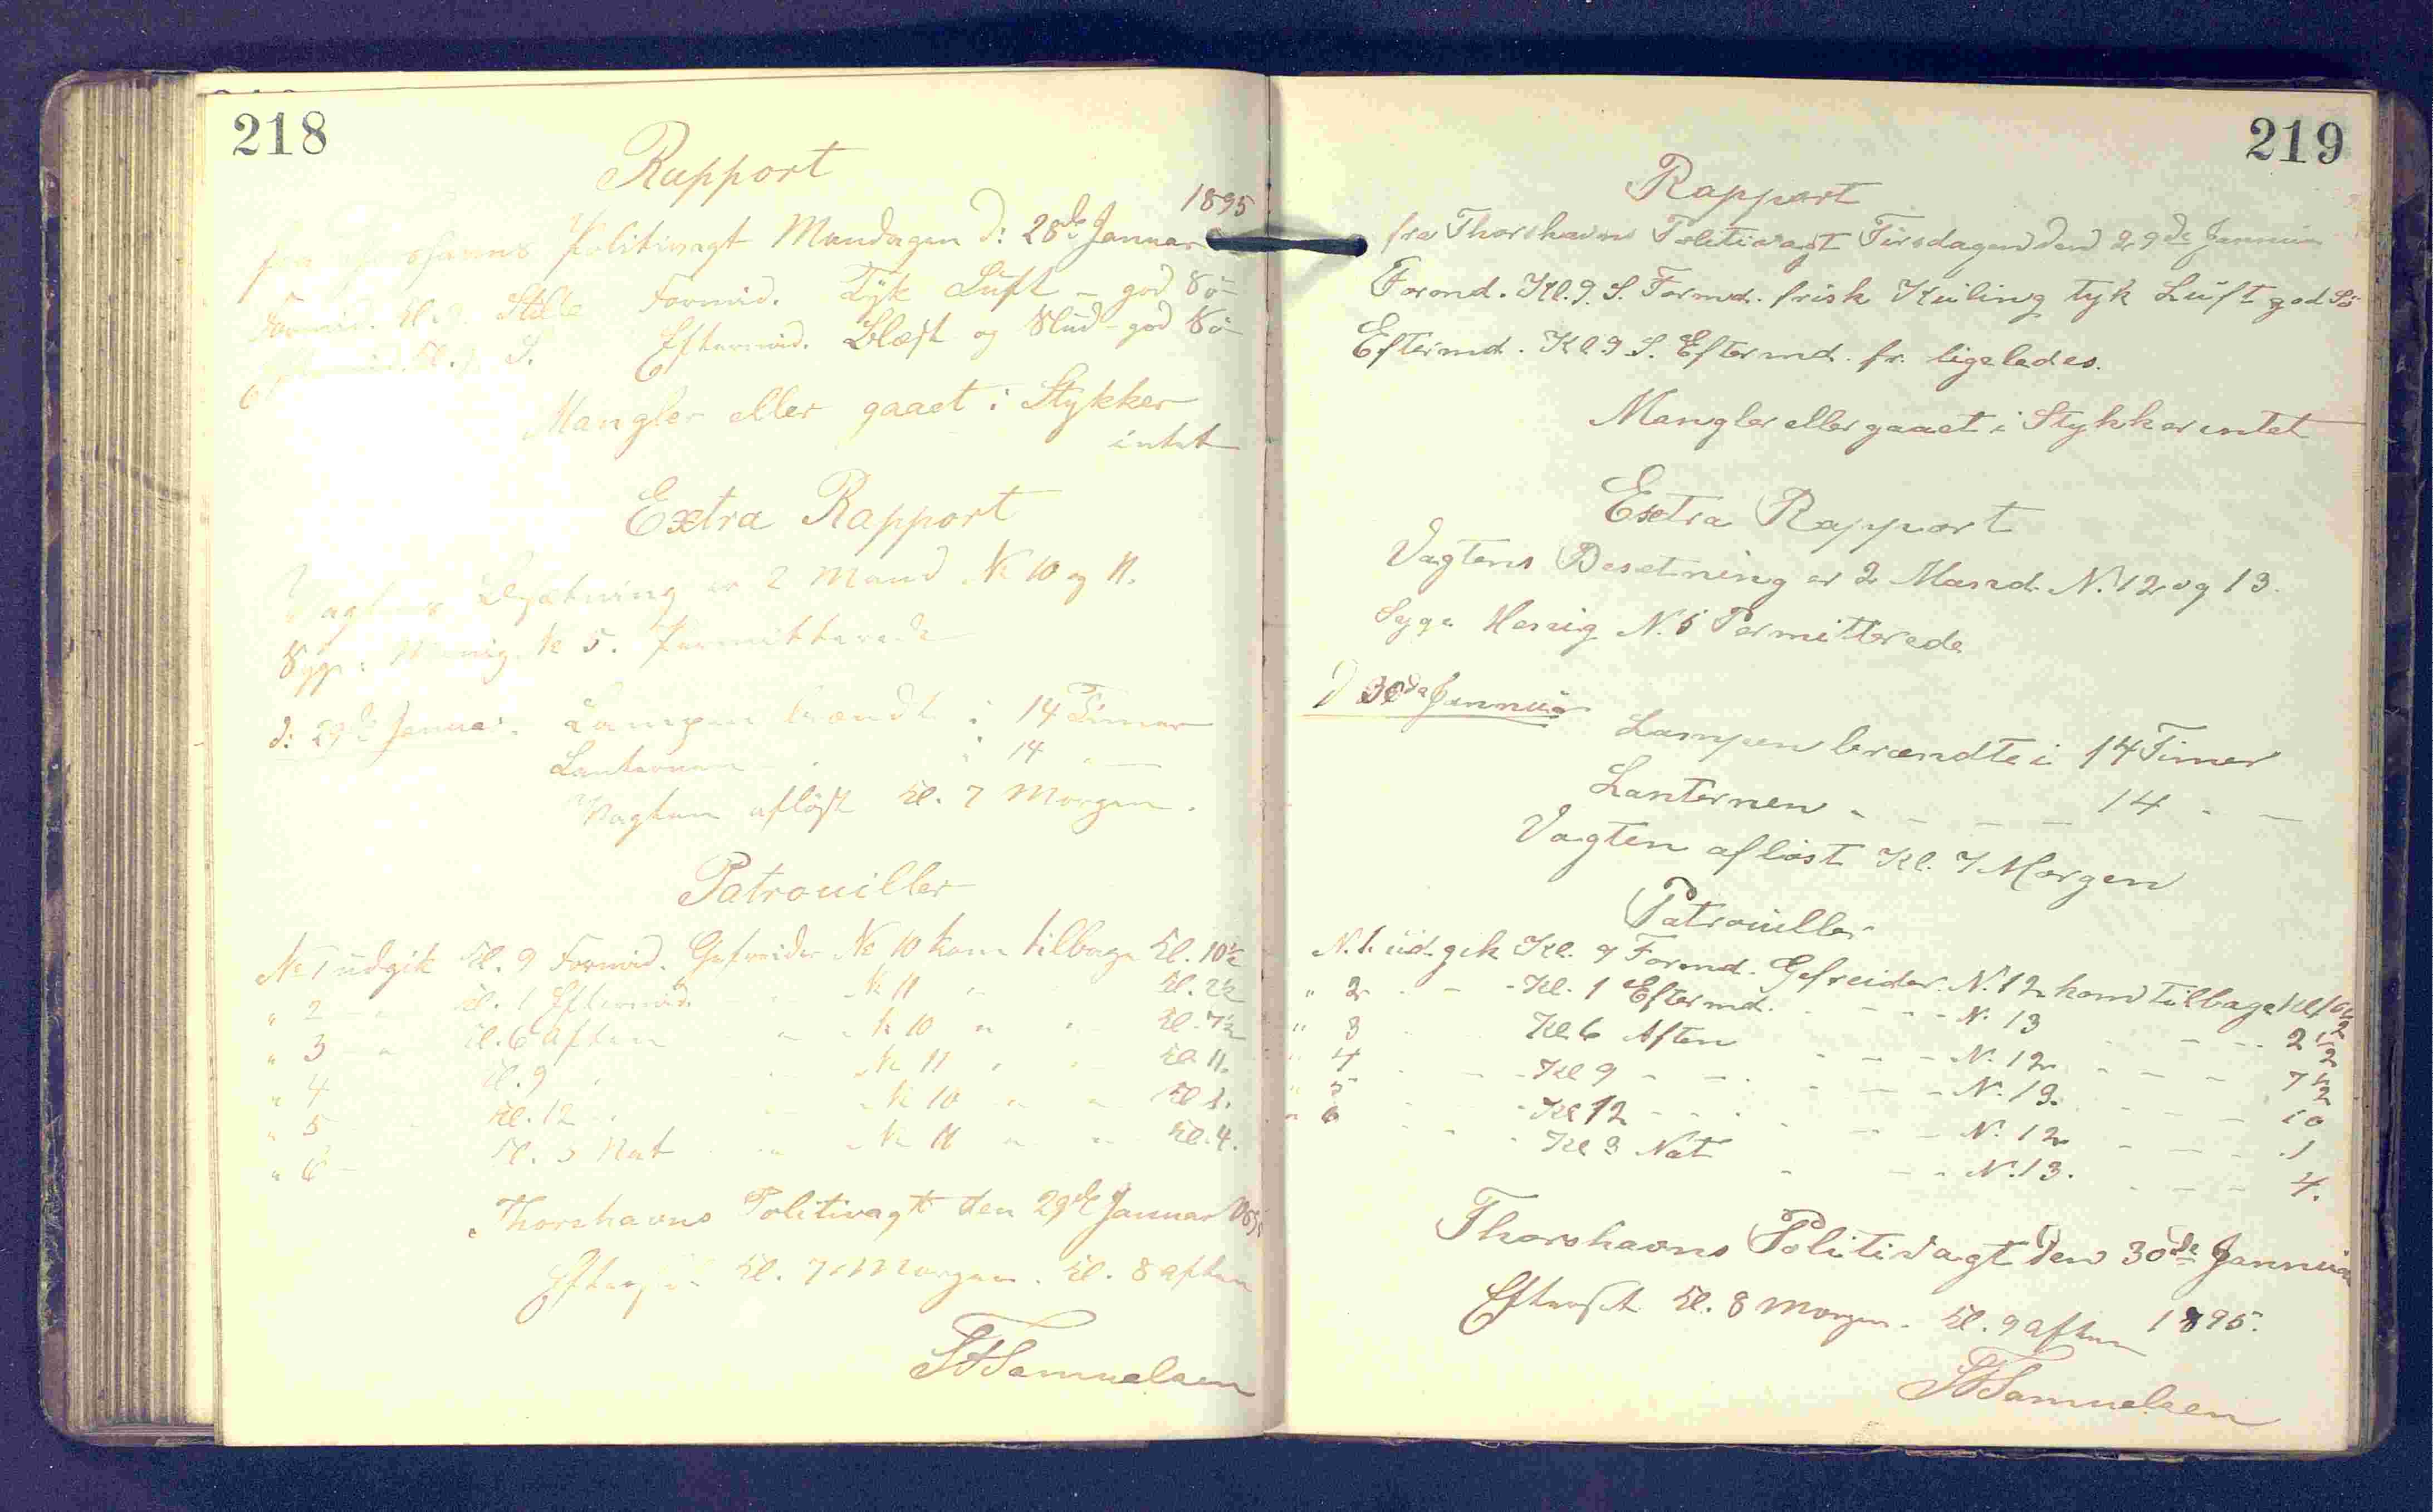 218
Rapport
1895
fra Thorshavns Politivagt Mandagen d: 28de Januar
Formid. Kl. 9. Stille Formid. Tyk Luft – god Sö
Eftermid. Kl. 9 S. Eftermid. Blæst og Slud – god Sö
Mangler eller gaaet i Stykker
intet
Extra Rapport
Vagtens Besætning er 2 Mand No 10 og 11.
Syge: Menig No 5. Permitterede
d: 29de Januar. Lampen brændt i 14 Timer
Lanternen - " 14 - —
Vagten aflöst Kl. 7 Morgen.
Patrouiller
No 1 udgik Kl. 9 Formid. Gefreider No 10 kom tilbage Kl. 10½
" 2 - " Kl. 1 Eftermid. - " No 11 " - Kl. 2½
" 3 - " Kl. 6 Aften " " No 10 " " Kl. 7½
" 4 Kl. 9 " - " No 11 " " Kl 11.
" 5 - - Kl. 12 " - " No 10 " " Kl 1.
" 6 - Kl. 3 Nat - " " No 11 " " Kl. 4.
Thorshavns Politivagt den 29de Januar 1895
Efterset Kl. 7 Morgen. Kl. 8 aften
Samuelsen
219
Rapport
fra Thorshavns Politivagt Tirsdagen den 29de Januar
Formd. Kl. 9. S. Formd. frisk Kuling tyk Luft god Sö
Eftermd. Kl 9 S. Eftermd. fr. ligelades.
Mangler eller gaaet i Stykker intet
Extra Rapport
Vagtens Besetning er 2 Mand. N. 12 og 13.
Syge Menig N. 5 Permitterede
D 30de Januar
Lampen brændte i 14 Timer
Lanternen - - - — 14 - —
Vagten aflöst Kl. 7 Morgen
Patrouiller
N. 1. üdgik Kl. 9 Formd. Gefreider. N. 12 kom tilbage Kl 10½
" 2 - - - Kl. 1 Eftermd. - - - N. 13 - - - 2½
" 3 Kl 6 Aften - - - N. 12 - - - 7½
" 4 - - - Kl 9 - - - - - - N. 13. - - - 10
" 5 - - - Kl 12 - - - - - - N. 12 - - - 1
" 6 - - - Kl 3 Nat - - - N. 13. - - - 4.
Thorshavns Politivagt den 30de Januar
1895.
Efterset Kl. 8 Morgen. Kl. 9 aften
Samuelsen